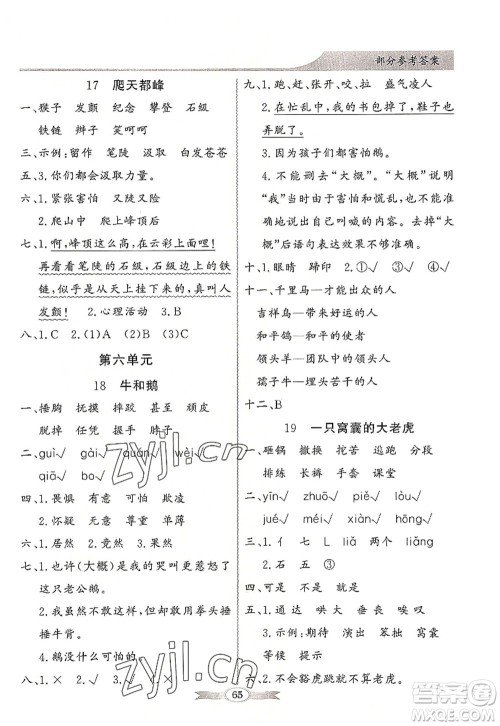 部分参考答案
17 爬天都峰
一、猴子 发颤 纪念 攀登 石级
铁链 辫子 笑呵呵
三、示例:留作 笔陡 汲取 白发苍苍
五、3.你们都会汲取力量。
六、1.紧张害怕 又陡又险
2.爬山中 爬上峰顶后
七、1.啊,峰顶这么高,在云彩上面哩!
再看看笔陡的石级,石级边上的铁
链,似乎是从天上挂下来的,真叫人
发颤! 2.心理活动 3.B
八、1.C 2.(1)A (2)B 3.B
第六单元
18 牛和鹅
一、捶胸 抚摸 摔跤 甚至 顽皮
脱掉 任凭 手握 脖子
二、guì√ gài√ quán√ wèi√
qiāo√ bó√
四、1.畏惧 害怕 可欺 欺凌
2.怀疑 竟然 单薄
五、1.居然 2.竟然 3.果然
七、1.也许(大概)我的哭叫更惹怒了
这只老公鹅。
2.看到牛,我不再无缘无故用拳头捶
牛背。
4.鹅没有那么可怕。
八、1.× 2.√ 3.× 4.√
九、1.跑、赶、张开、咬、拉 盛气凌人
2.在忙乱中,我的书包掉了,鞋子
也弄脱了。
3.因为孩子们都害怕鹅。
4.不能删去“大概”。“大概”说明
“我”当时因为害怕,所以不能准
确地说出自己的感受。去掉“大
概”后语句表达的意思就不准
确了。
十、1.眼睛 蹄印 2.①√ 3.③
十一、千里马—才能出众的人
吉祥鸟—带来好运的人
和平鸽—带来友好的人
领头羊—团队中的领导人
孺子牛—为大家服务的人
十二、B
19 一只窝囊的大老虎
一、砸锅 撤换 挖苦 逃跑 分段
排练 长裤 手套 课堂
二、yīn√ zhuō√ piě√ lòu√
xū√ liǎ√ mí√ hōng√
三、1.衤 七 L liǎ ③
2.石 五 ③
四、可是 不是 可是 就是
五、1.通达 哄笑 垂丧 叹气
3.示例:期待 演出 笨拙 窝囊
等候 提示
六、2.不会豁虎跳可能就扮不了老虎。
65